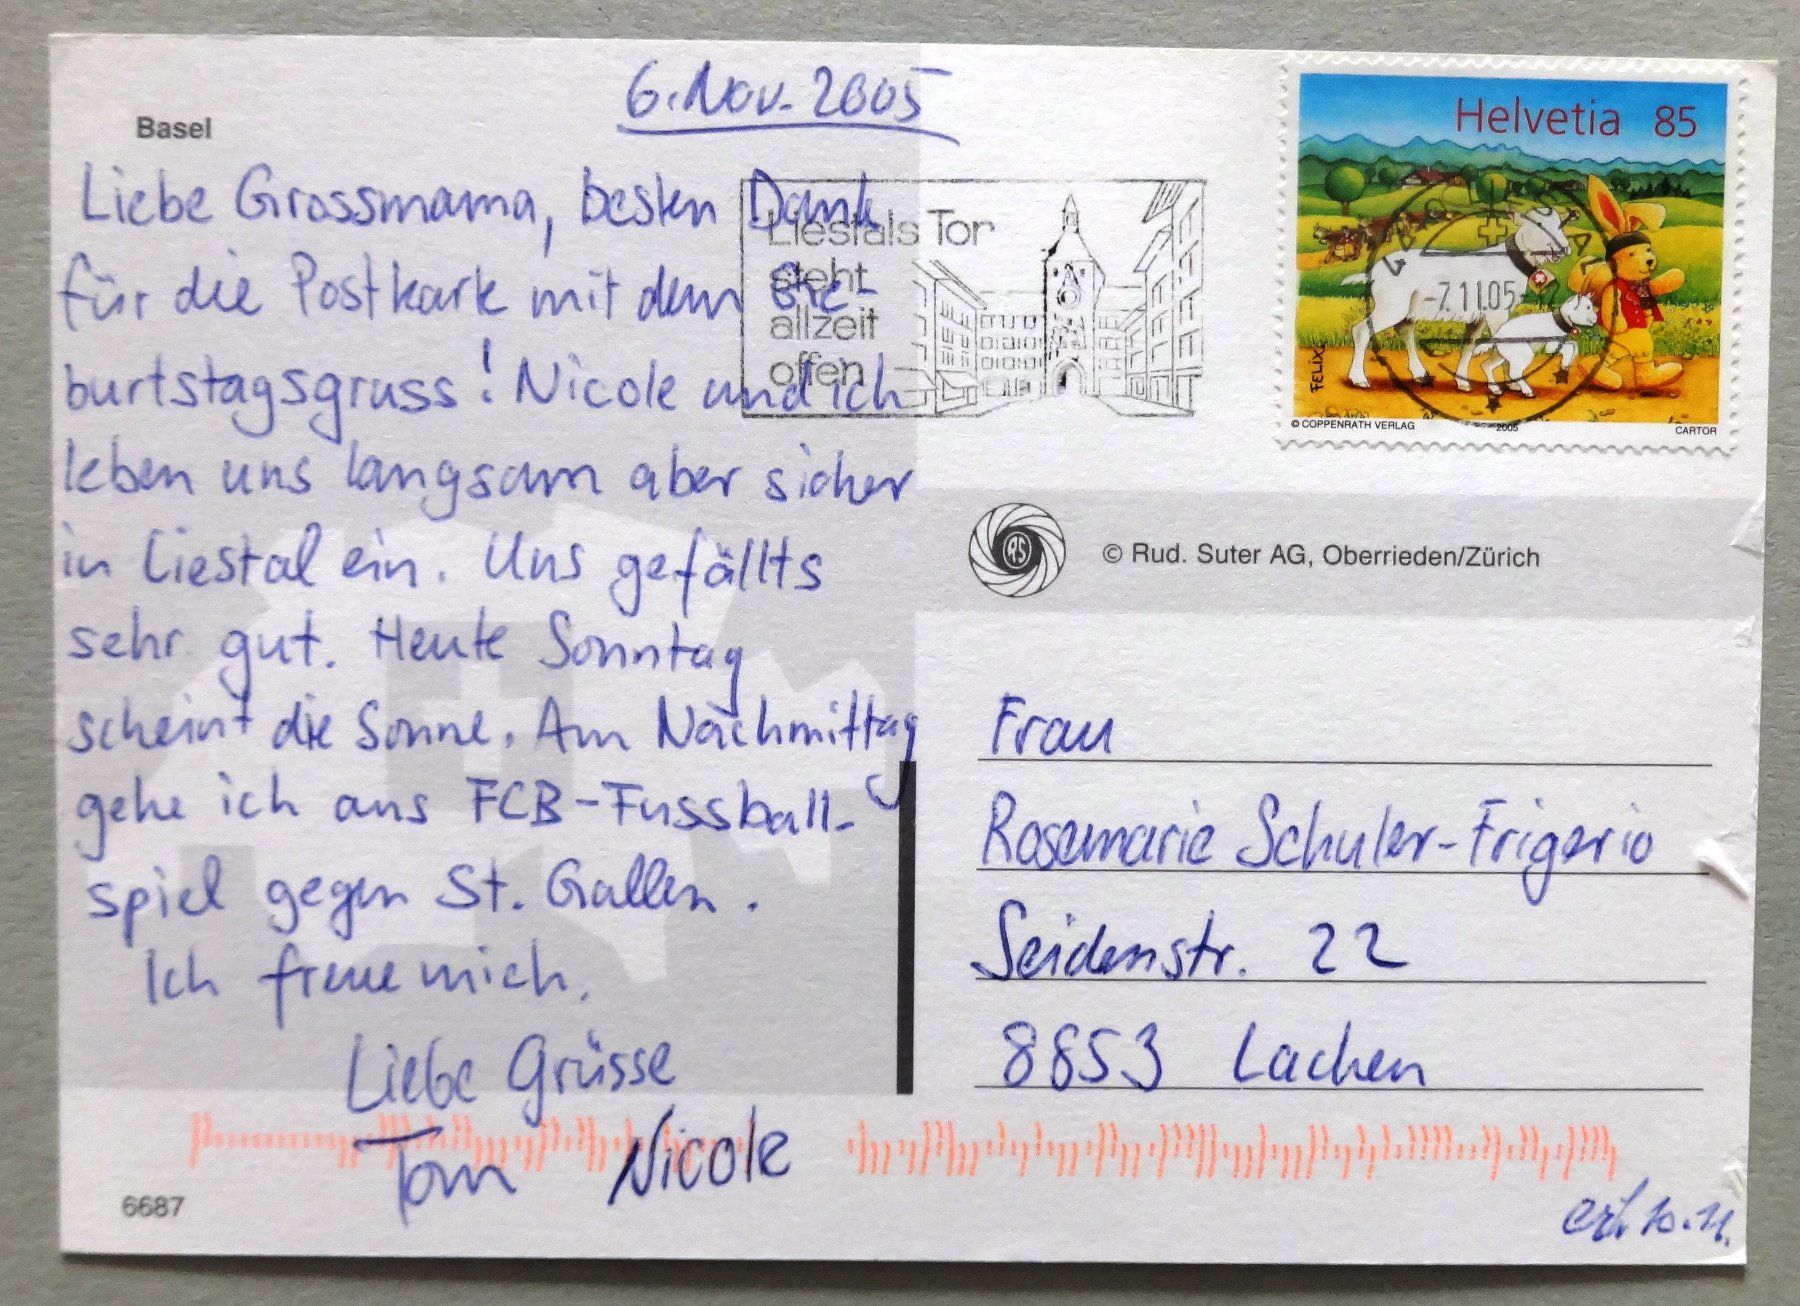 Basel
6. Nov. 2005
Liebe Grossmama, besten Dank
für die Postkarte mit dem Ge-
burtstagsgruss! Nicole und ich
leben uns langsam aber sicher
in Liestal ein. Uns gefällts
sehr gut. Heute Sonntag
scheint die Sonne. Am Nachmittag
gehe ich ans FCB-Fussball-
spiel gegen St. Gallen.
Ich freue mich.
Liebe Grüsse
Tom Nicole
6687
Liestals Tor
steht
allzeit
offen
Helvetia 85
LIESTAL
-7.11.05-12
FELIX
© COPPENRATH VERLAG 2005 CARTOR
RS
© Rud. Suter AG, Oberrieden/Zürich
Frau
Rosemarie Schuler-Frigerio
Seidenstr. 22
8853 Lachen